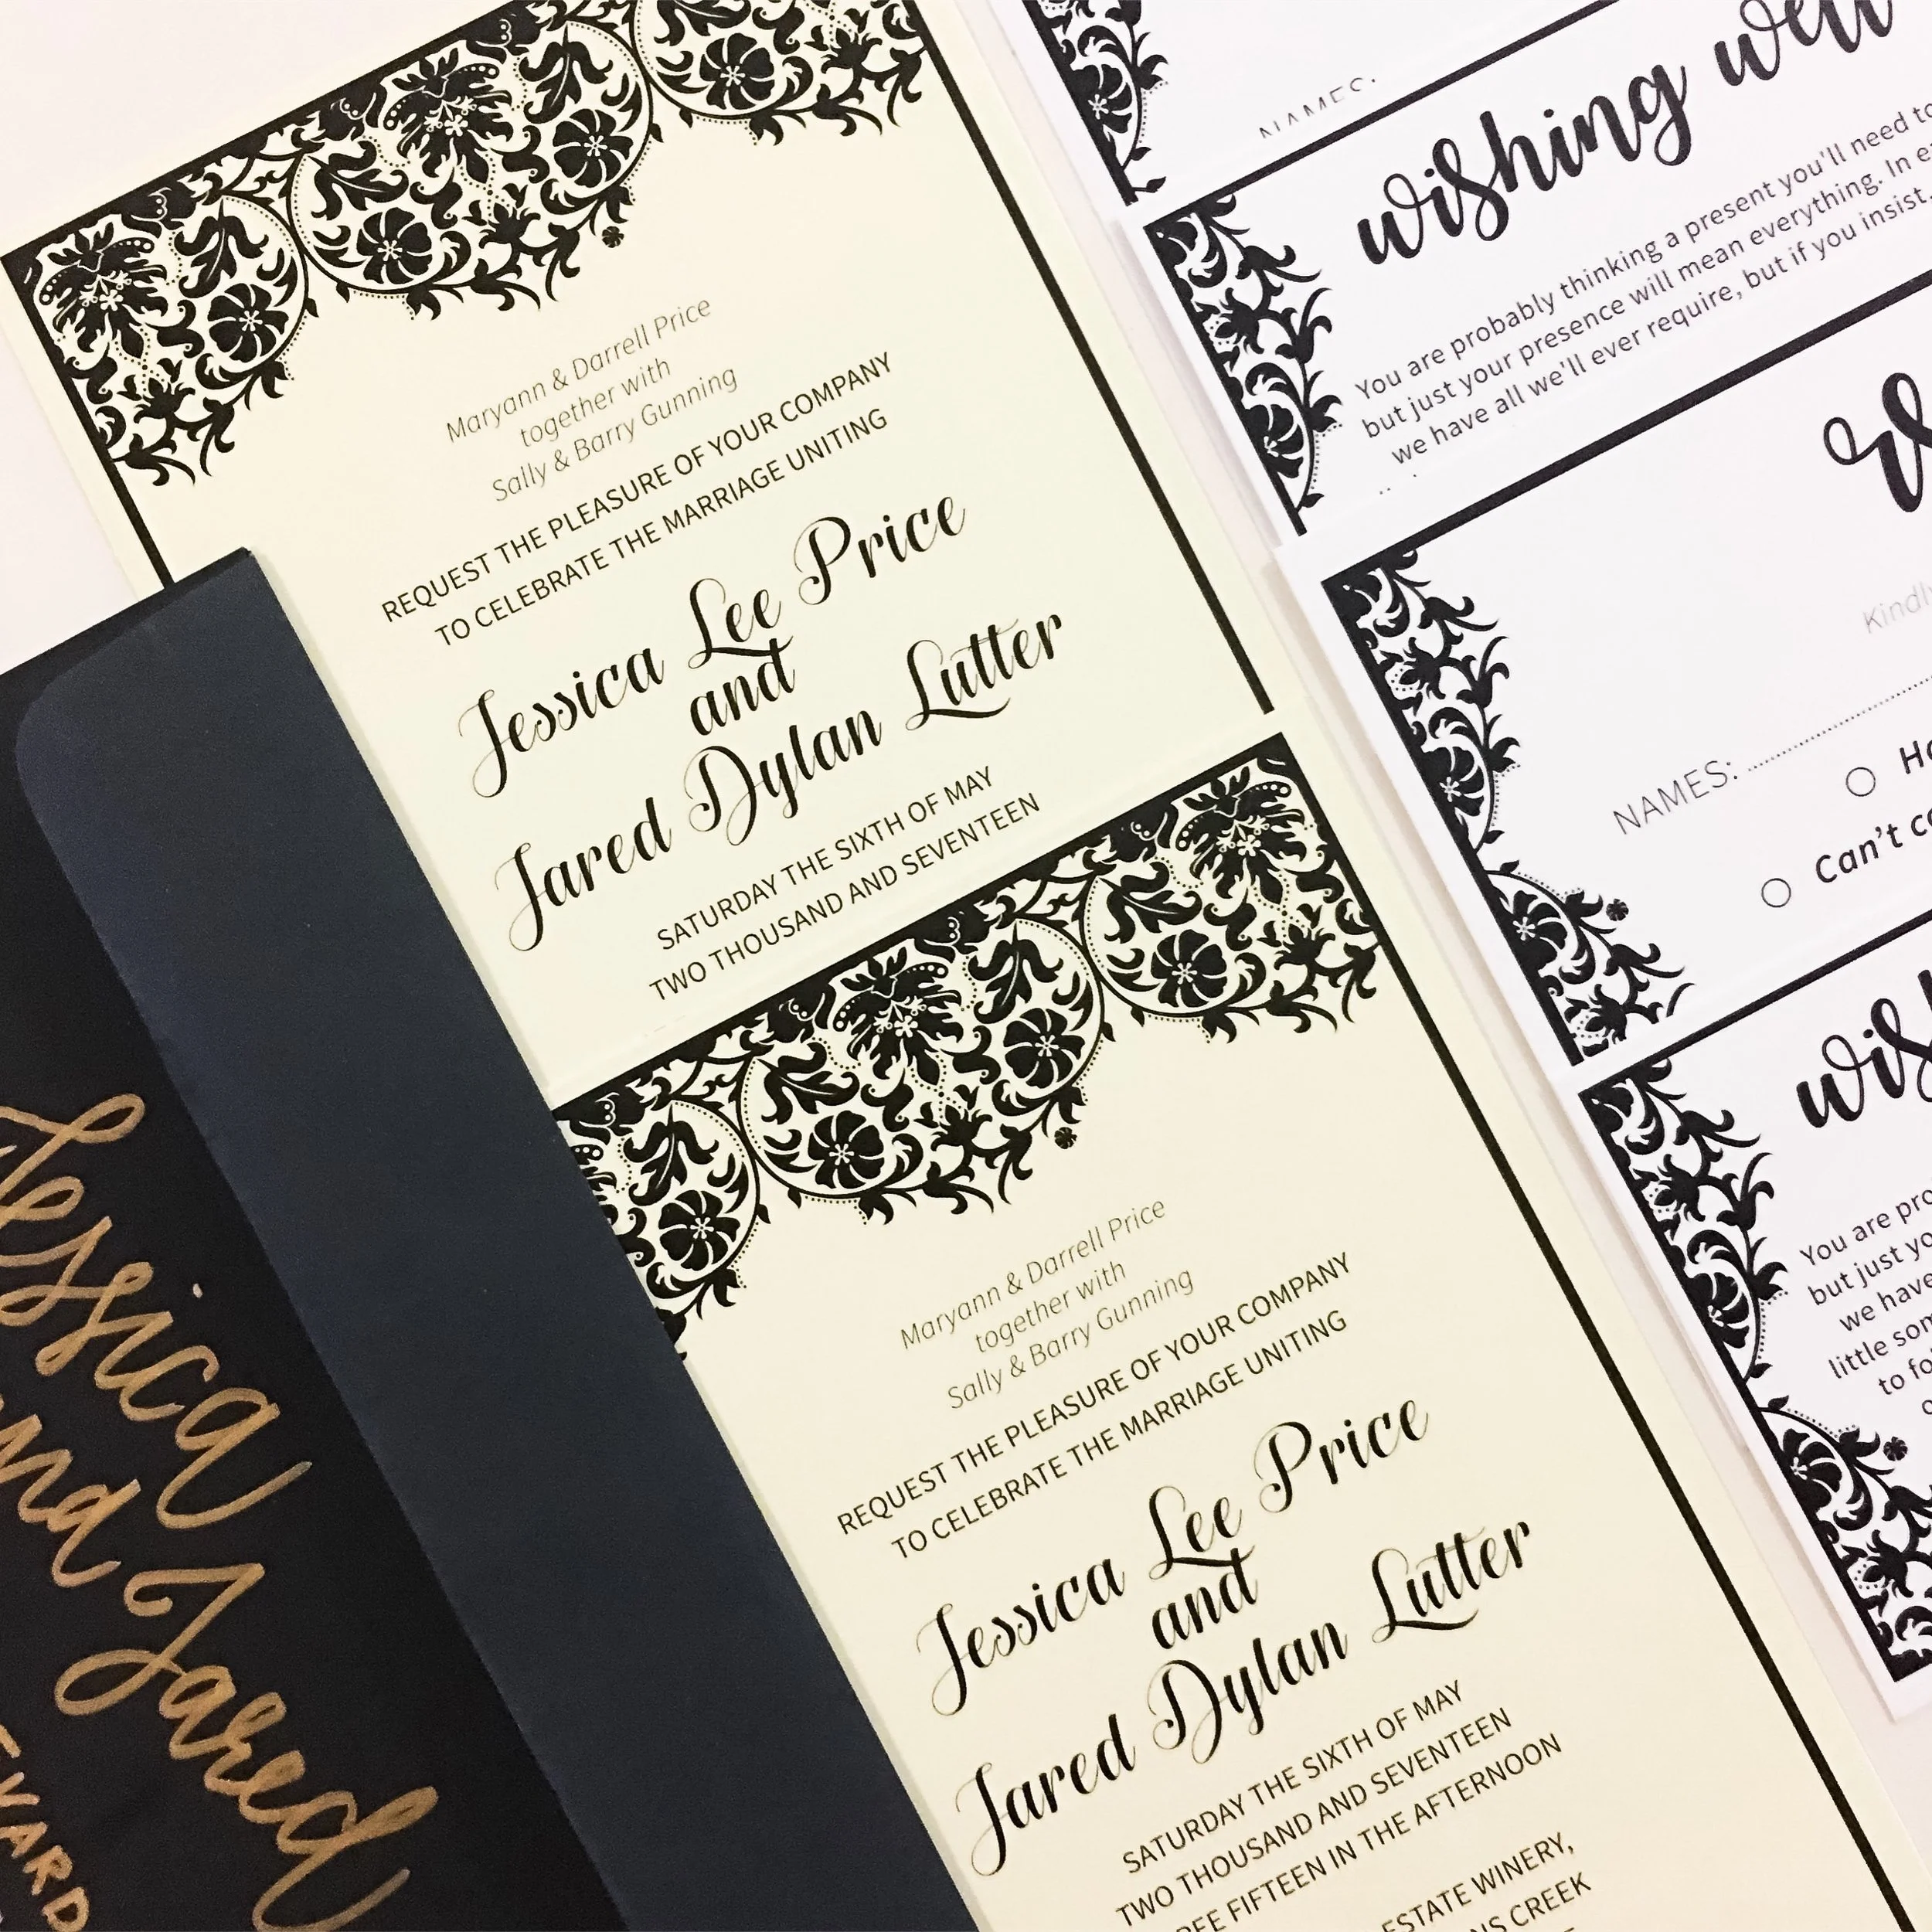 Maryann & Darrell Price
together with
Sally & Barry Gunning
REQUEST THE PLEASURE OF YOUR COMPANY
TO CELEBRATE THE MARRIAGE UNITING
Jessica Lee Price
and
Jared Dylan Lutter
SATURDAY THE SIXTH OF MAY
TWO THOUSAND AND SEVENTEEN
Maryann & Darrell Price
together with
Sally & Barry Gunning
REQUEST THE PLEASURE OF YOUR COMPANY
TO CELEBRATE THE MARRIAGE UNITING
Jessica Lee Price
and
Jared Dylan Lutter
SATURDAY THE SIXTH OF MAY
TWO THOUSAND AND SEVENTEEN
FIFTEEN IN THE AFTERNOON
ESTATE WINERY,
CREEK
Jessica
and
Jared
NAMES:
wishing well
You are probably thinking a present you'll need to
but just your presence will mean everything. In
we have all we'll ever require, but if you insist,
Kindly
NAMES:
Can't
You are
but just
we have
little
to